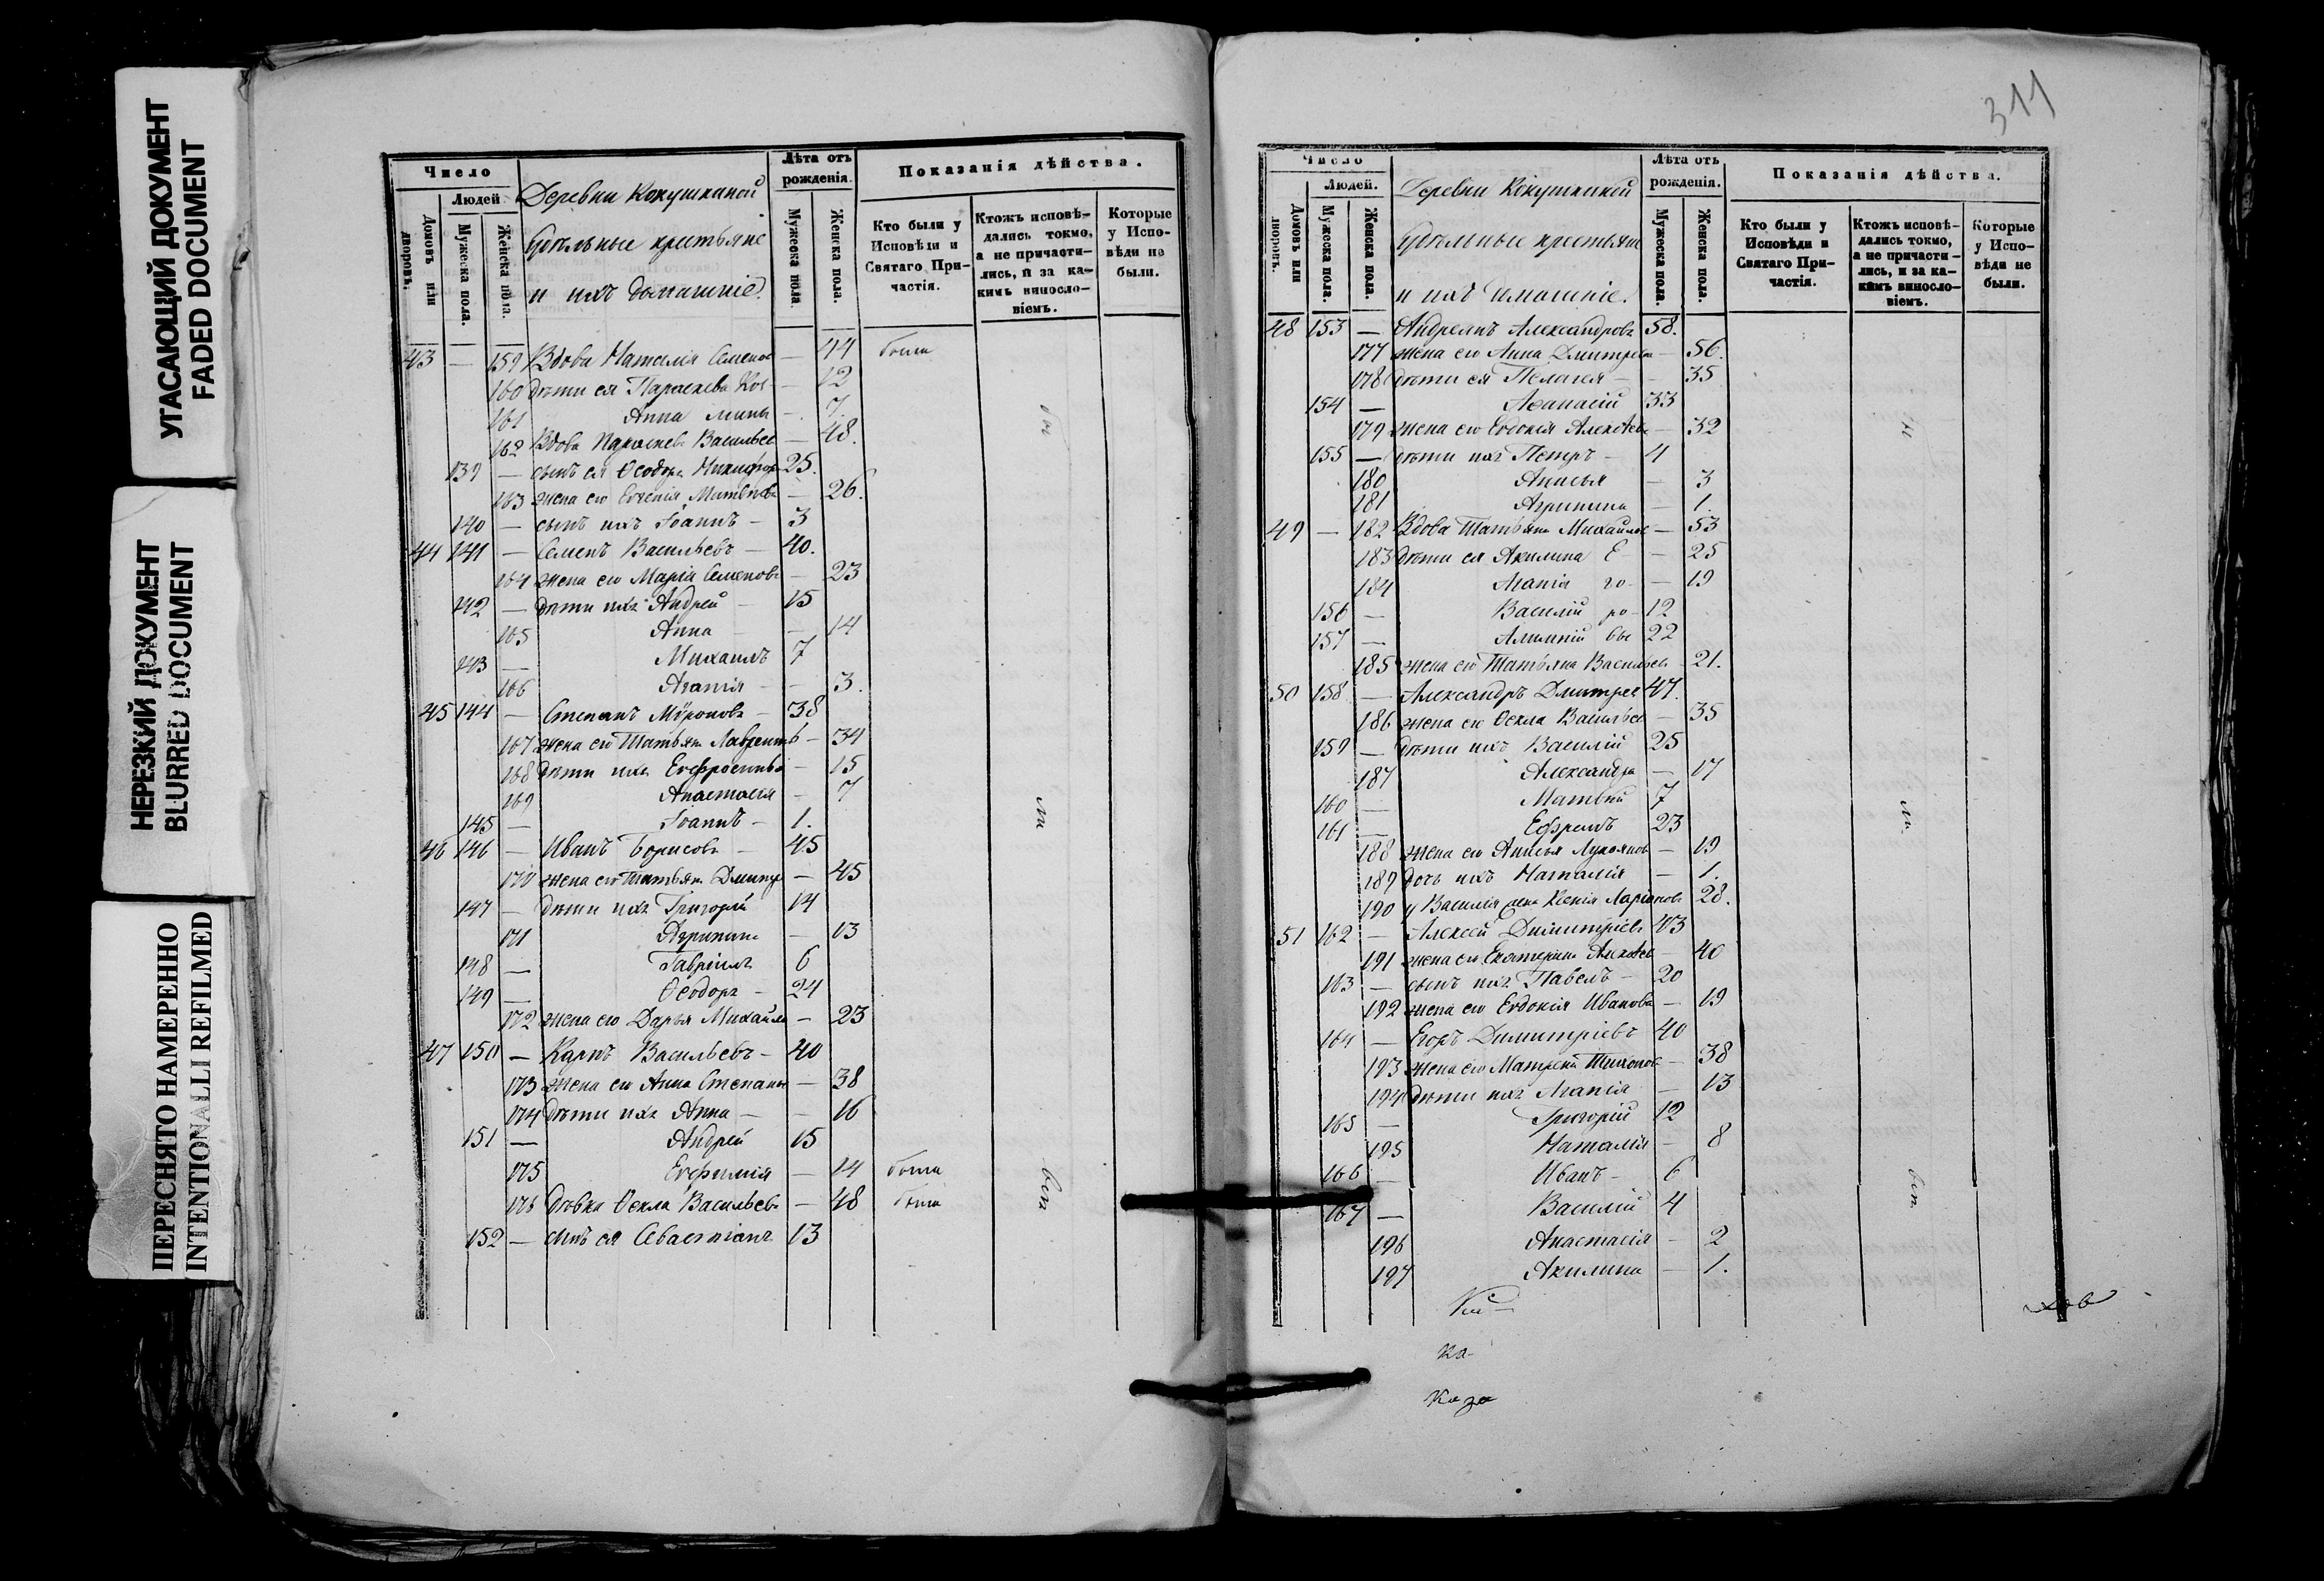 УГАСАЮЩИЙ ДОКУМЕНТ
FADED DOCUMENT
НЕРЕЗКИЙ ДОКУМЕНТ
BLURRED DOCUMENT
ПЕРЕСНЯТО НАМЕРЕННО
INTENTIONALLI REFILMED
Число
Людей
Домовъ или дворовъ.
Мужеска пола.
Женска пола.
Деревни Кокушкиной
Удѣльные крестьяне
и ихъ домашніе.
Лѣта отъ рожденія.
Мужеска пола.
Женска пола.
Показанія дѣйства.
Кто были у Исповѣди и Святаго Причастія.
Ктожъ исповѣдались токмо, а не причастились, и за какимъ винословіемъ.
Которые у Исповѣди не были.
43 — 159 Вдова Наталія Семенов — 44 была
160 дѣти ея Параскева — 12
161 Анна — 7
162 Вдова Параскев Васильев — 48.
139 — сынъ ея Ѳеодоръ Никифор 25.
163 жена его Евгенія Матвѣева — 26.
140 — сынъ ихъ Іоаннъ — 3
44 141 — Семенъ Васильевъ — 40.
164 жена его Марія Семенова — 23
142 — дѣти ихъ Андрей — 15
165 Анна — 14
143 — Михаилъ 7
166 Агапія — 3.
45 144 — Степанъ Мѵронов — 38
167 жена его Татьян Лаврентьев — 34
168 дѣти ихъ Евфросинья — 15
169 Анастасія — 7
145 — Іоаннъ — 1.
46 146 — Иванъ Борисовъ — 45
170 жена его Татьян Дмитр — 45
147 — дѣти ихъ Григорій 14
171 Агрипина — 13
148 — Гавріилъ 6
149 — Ѳеодоръ — 24
172 жена его Дарья Михайлов — 23
47 150 — Карпъ Васильевъ — 40
173 жена его Анна Степанов — 38
174 дѣти ихъ Анна — — 16
151 — Андрей 15
175 Евфимія — 14 была
176 дѣвка Ѳекла Васильев — 48 была
152 — сынъ ея Севастіанъ 13
311
Число
Людей.
Домовъ или дворовъ.
Мужеска пола.
Женска пола.
Деревни Кокушкиной
Удѣльные крестьяне
и ихъ домашніе.
Лѣта отъ рожденія.
Мужеска пола.
Женска пола.
Показанія дѣйства.
Кто были у Исповѣди и Святаго Причастія.
Ктожъ исповѣдались токмо, а не причастились, и за какимъ винословіемъ.
Которые у Исповѣди не были.
48 153 — Андреянъ Александровъ 58.
177 жена его Анна Дмитрева — 56.
178 дѣти ея Пелагея — — 35
154 — Аѳанасій 33
179 жена его Евдокія Алексѣев — 32
155 — дѣти ихъ Петръ — 4
180 Анисья — 3
181 Агрипина — 1.
49 — 182 Вдова Татьяна Михайлов — 53
183 дѣти ея Акилина Е — — 25
184 Агапія го — — 19
156 — Василій ро — 12
157 — Алимпій вы 22
185 жена его Татьяна Васильев — 21.
50 158 — Александръ Дмитрев 47.
186 жена его Ѳекла Васильев — 35
159 — дѣти ихъ Василій 25
187 Александра — 17
160 — Матвѣй 7
161 — Ефремъ 23
188 жена его Анисья Лукоянов — 19
189 дочь ихъ Наталія — 1.
190 у Василія жена Ксенія Ларіонов 28.
51 162 — Алексей Димитріевъ 43
191 жена его Екатерина Алексѣев — 40
163 — сынъ ихъ Павелъ — 20
192 жена его Евдокія Иванова — 19
164 — Егоръ Димитріевъ 40
193 жена его Матрена Тихонов — 38
194 дѣти ихъ Агапія — 13
165 — Григорій 12
195 Наталія — 8
166 — Иванъ — 6
167 — Василій 4
196 Анастасія — 2
197 Акилина — 1.
ка-